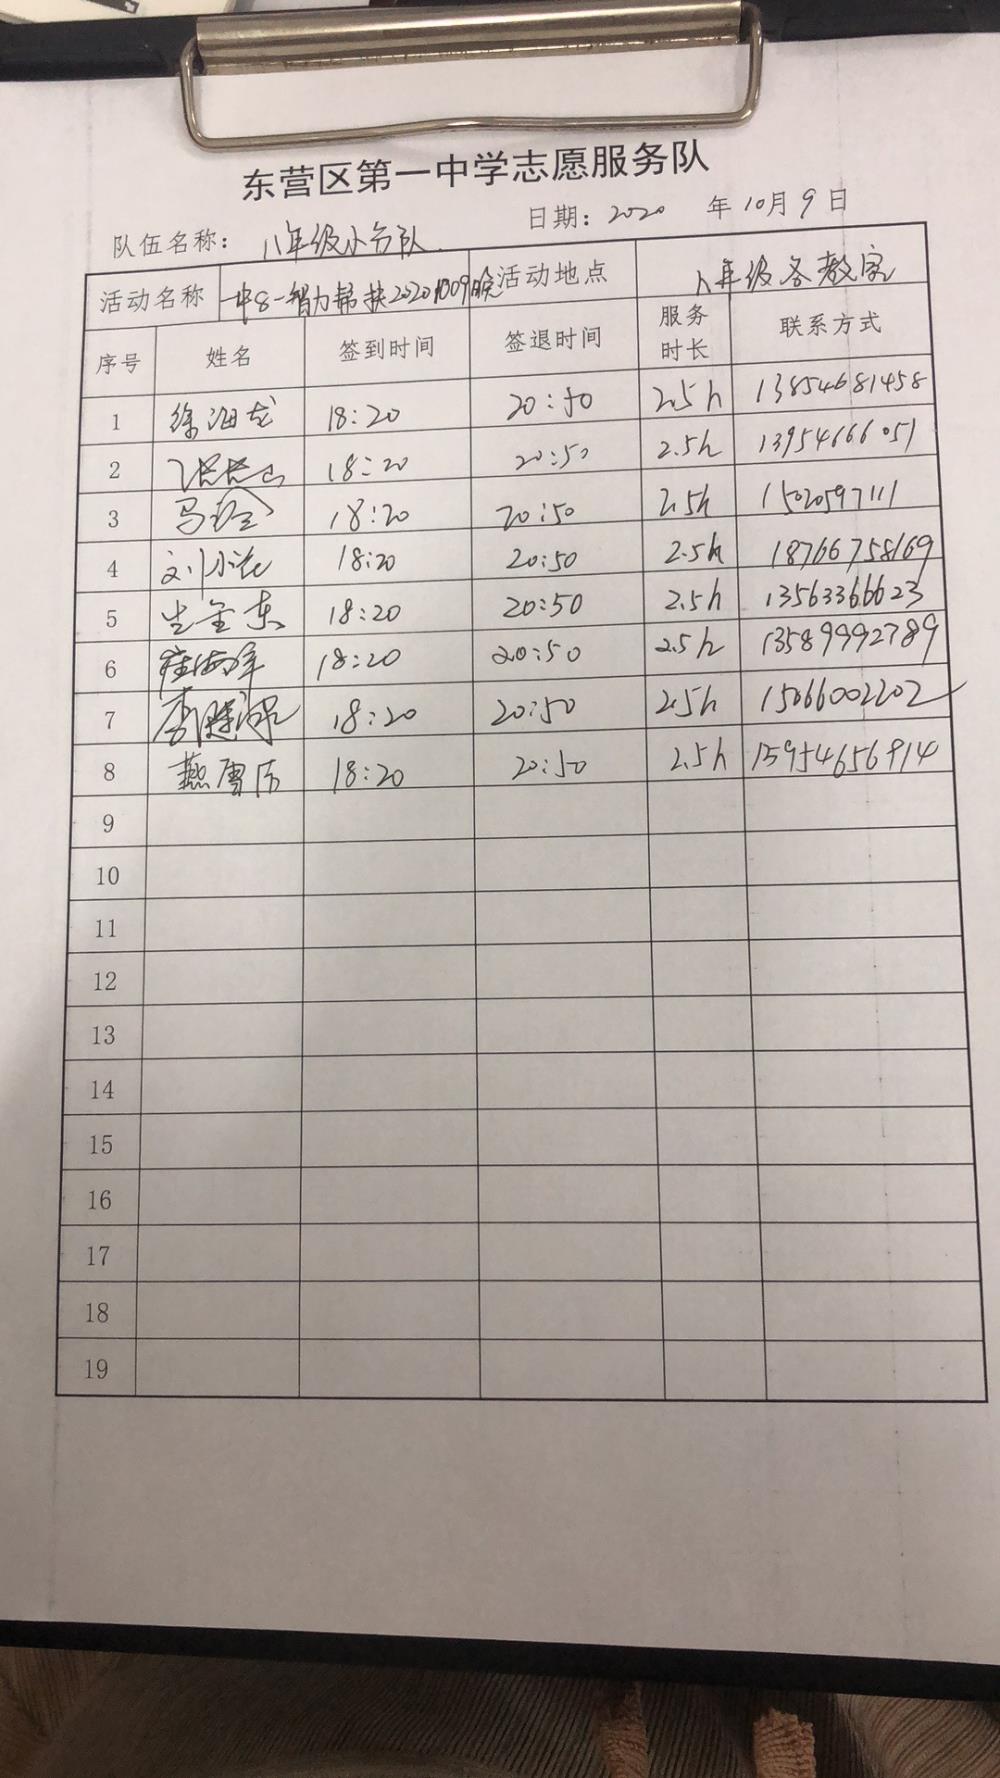 东营区第一中学志愿服务队
队伍名称： 八年级小分队 日期：2020 年10月9日
活动名称 一中8一智力帮扶20201009晚 活动地点 八年级各教室
序号 姓名 签到时间 签退时间 服务时长 联系方式
1 徐海龙 18:20 20:50 2.5h 13854681458
2 18:20 20:50 2.5h 13954666051
3 马玲 18:20 20:50 2.5h 15020597111
4 刘小花 18:20 20:50 2.5h 18766758169
5 生金东 18:20 20:50 2.5h 13563366623
6 崔海军 18:20 20:50 2.5h 13589992789
7 18:20 20:50 2.5h 15066002202
8 燕雪芹 18:20 20:50 2.5h 15954656914
9
10
11
12
13
14
15
16
17
18
19